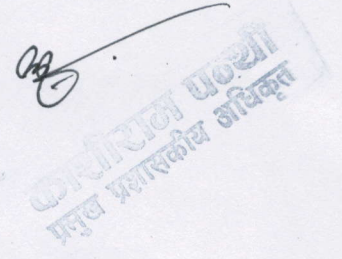 काशीराम पन्थी
प्रमुख प्रशासकीय अधिकृत